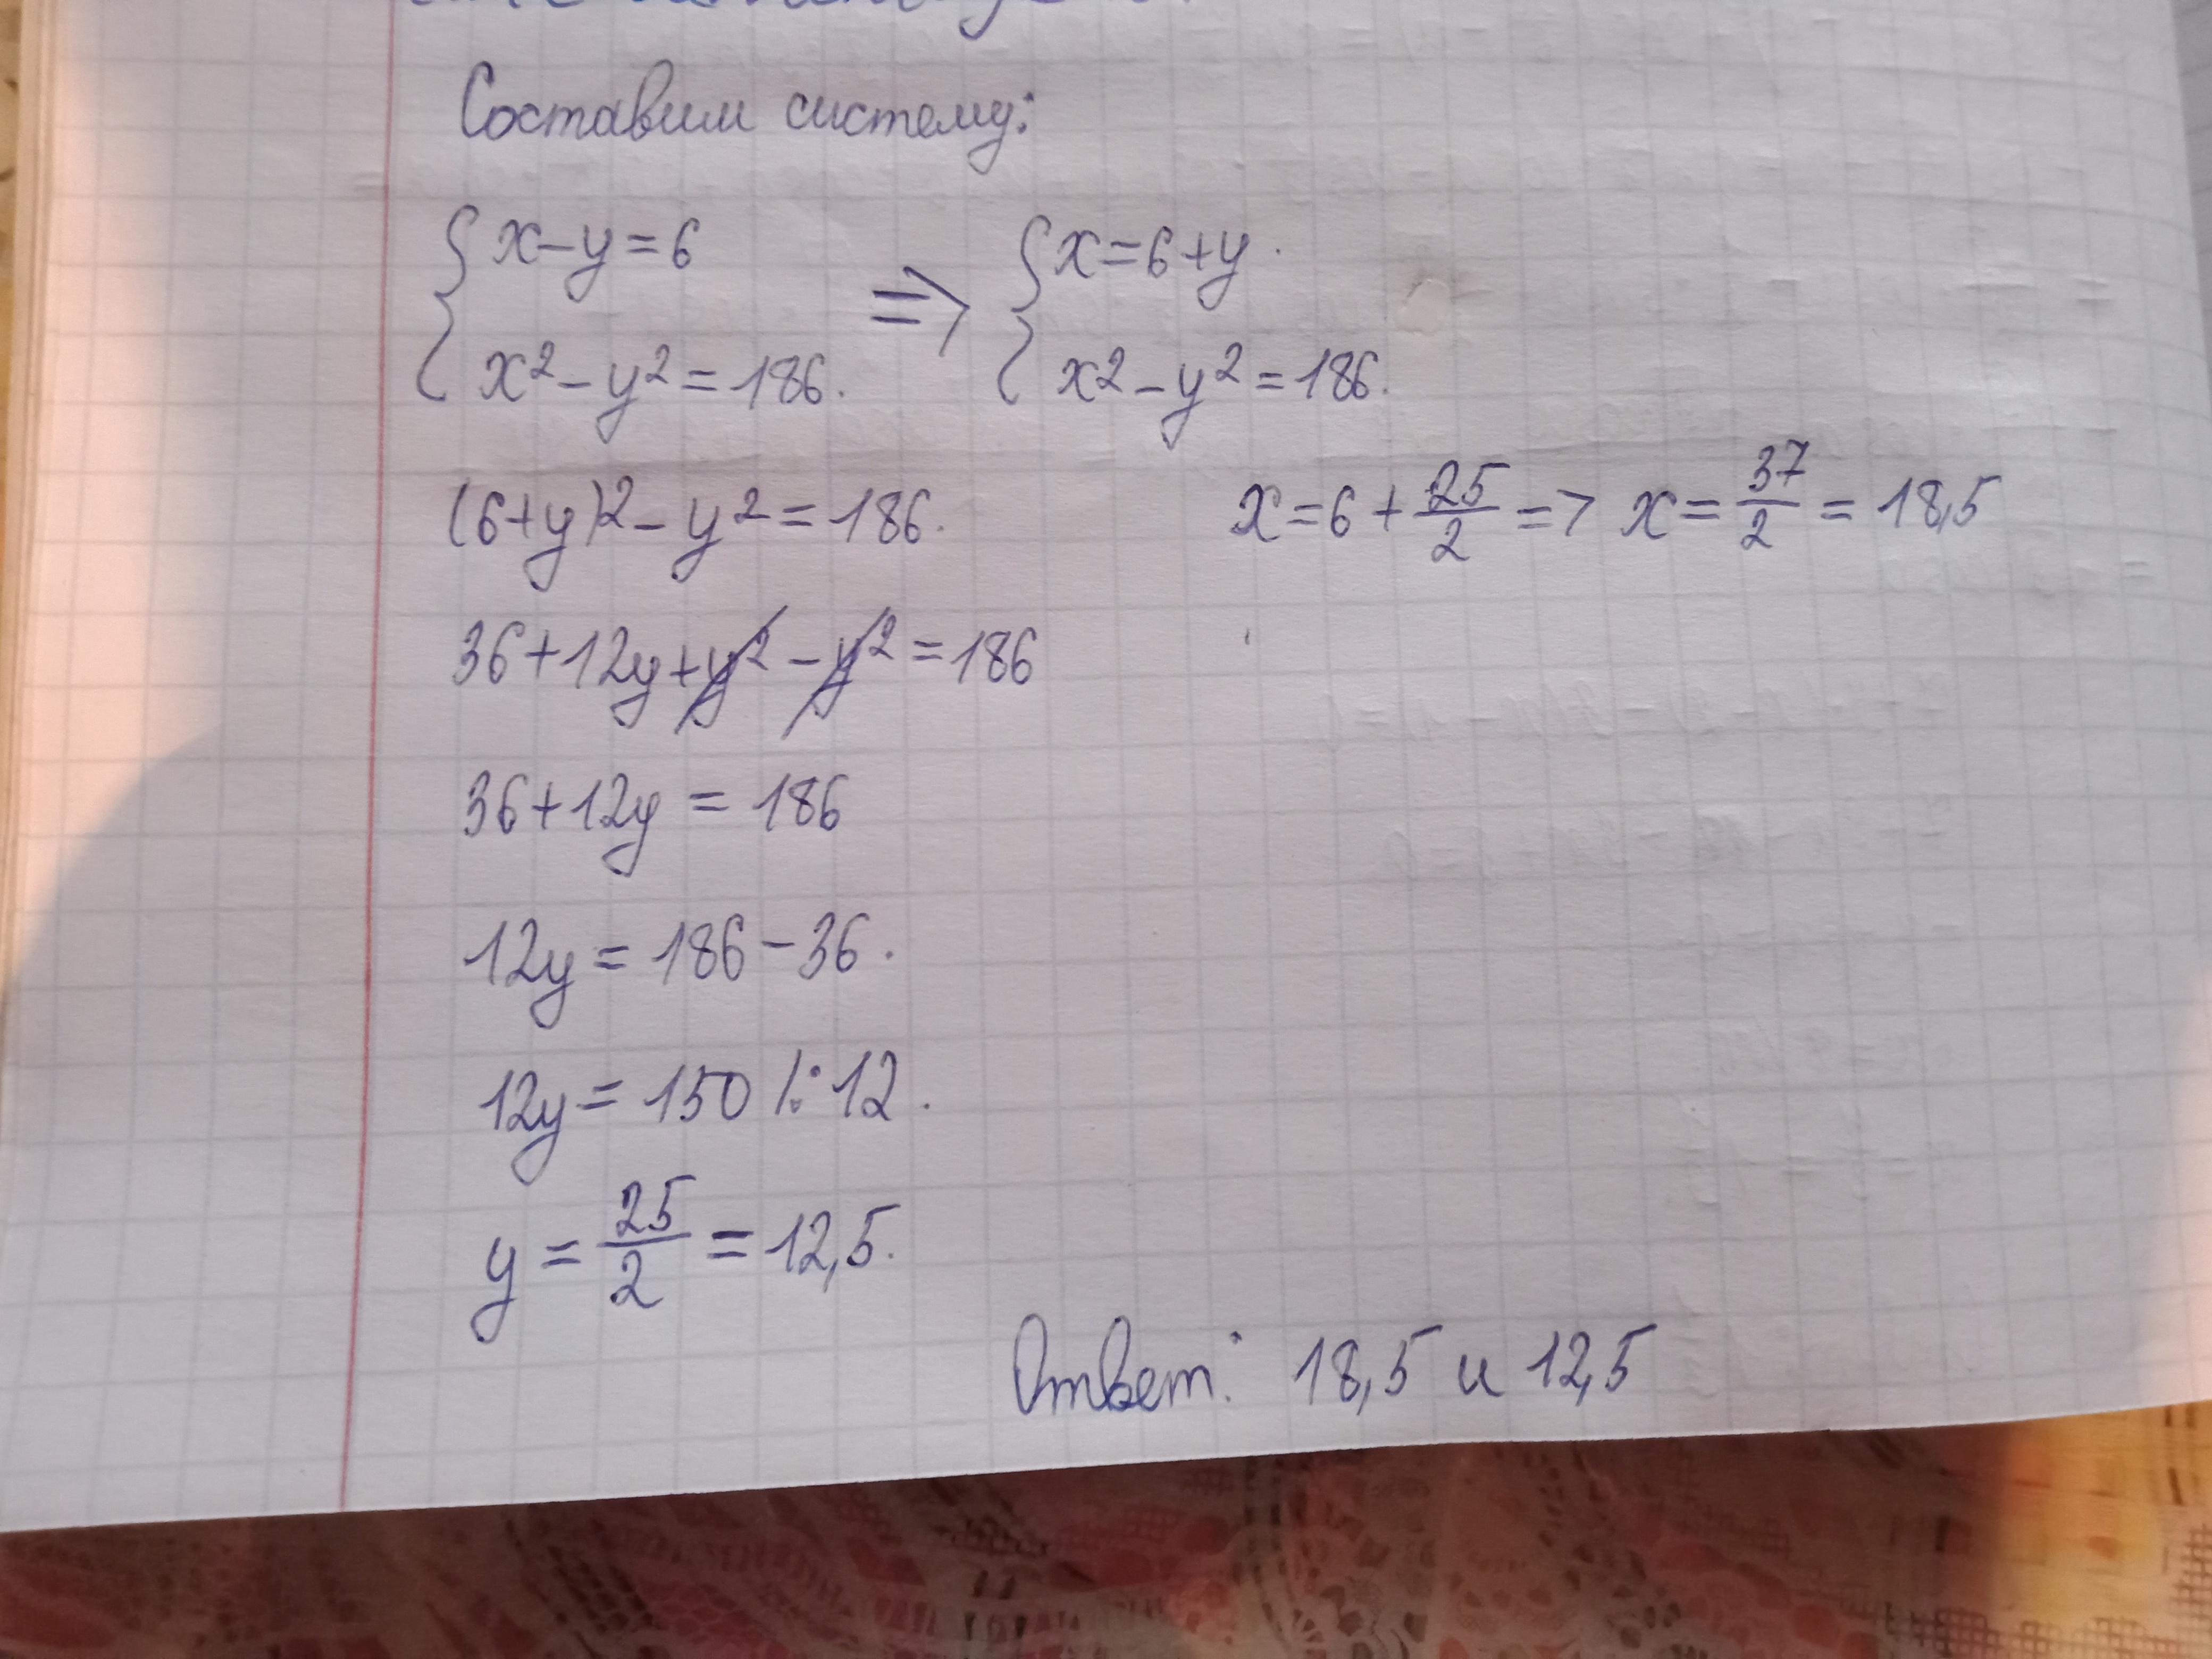 Составим систему:
{x-y=6 => {x=6+y.
{x²-y²=186. {x²-y²=186.
(6+y)²-y²=186. x=6+25/2=> x=37/2=18,5
36+12y+y²-y²=186
36+12y=186
12y=186-36.
12y=150 |:12.
y=25/2=12,5.
Ответ: 18,5 и 12,5